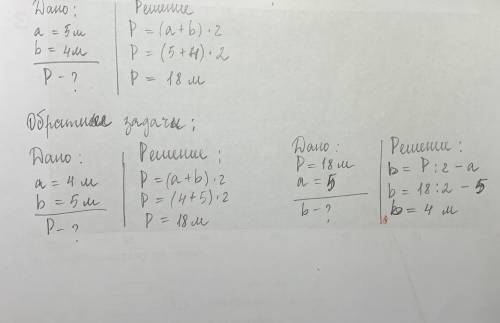 Дано:
a = 5м
b = 4м
P - ?
Решение
P = (a+b)·2
P = (5+4)·2
P = 18 м
Обратные задачи:
Дано:
a = 4 м
b = 5 м
P - ?
Решение:
P = (a+b)·2
P = (4+5)·2
P = 18м
Дано:
P = 18 м
a = 5
b - ?
Решение:
b = P:2 - a
b = 18:2 - 5
b = 4 м